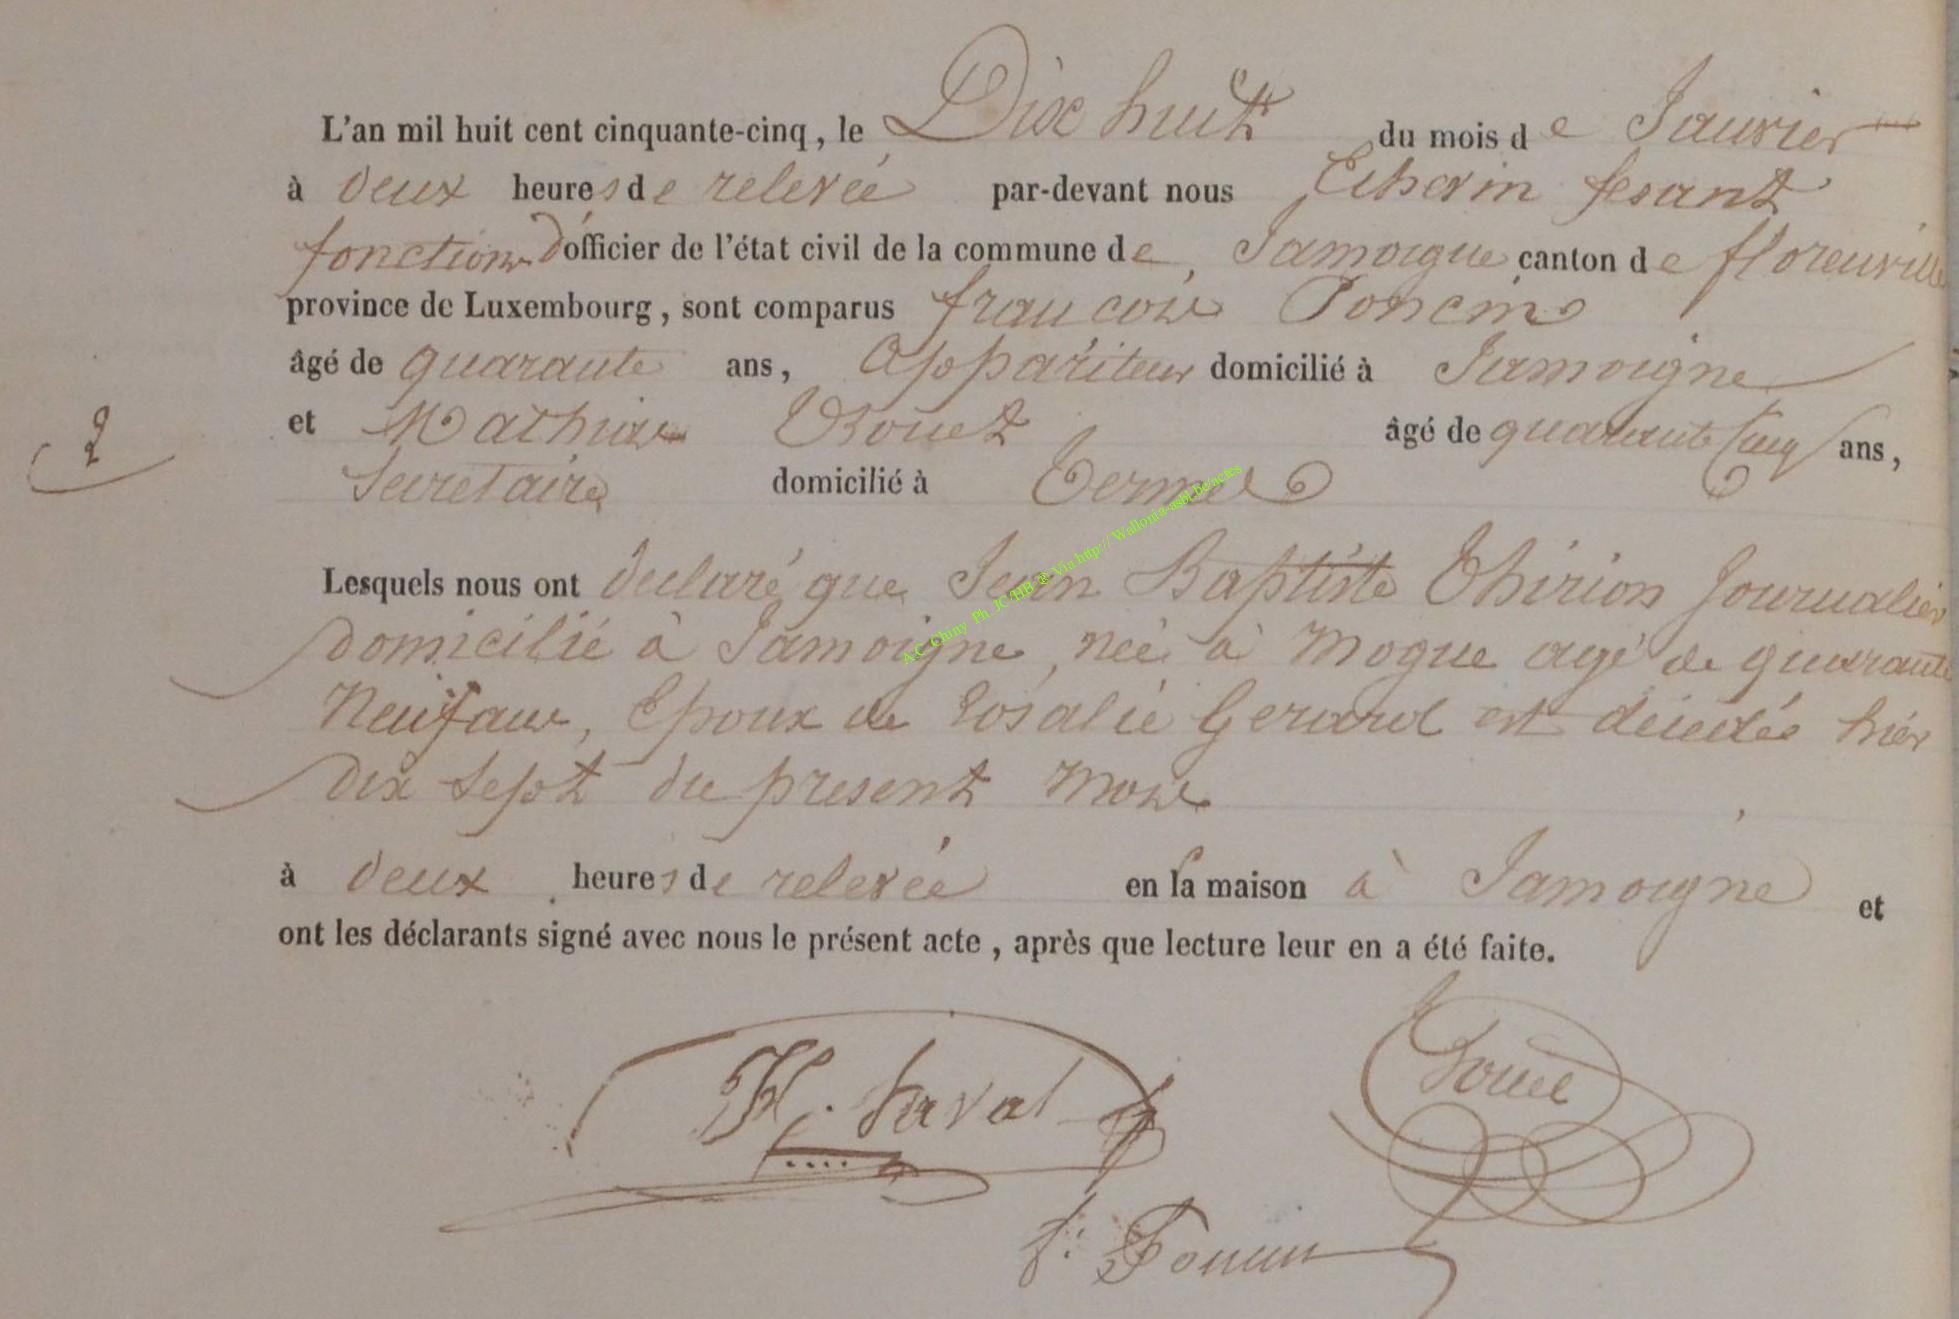 L'an mil huit cent cinquante-cinq, le Dix huit du mois de Janvier
à deux heures de relevée par-devant nous Echevin fesant
fonctions d'officier de l'état civil de la commune de Jamoigne canton de florenville
province de Luxembourg, sont comparus françois Poncin
âgé de quarante ans, Appariteur domicilié à Jamoigne
et Mathieu Bouet âgé de quarante cinq ans,
2
Secretaire domicilié à Termes
Lesquels nous ont déclaré que Jean Baptiste Thirion Journalier
domicilié à Jamoigne, née à Mogue agé de quarante
Neuf ans, Epoux de Rosalie Gerard est décédée hier
dix sept du present mois
à deux heures de relevée en sa maison à Jamoigne et
ont les déclarants signé avec nous le présent acte, après que lecture leur en a été faite.
H. Laval
Bouet
f: Poncin
A.C. Chiny Ph JC/HB & Via http://Wallonia-asbl.be/actes